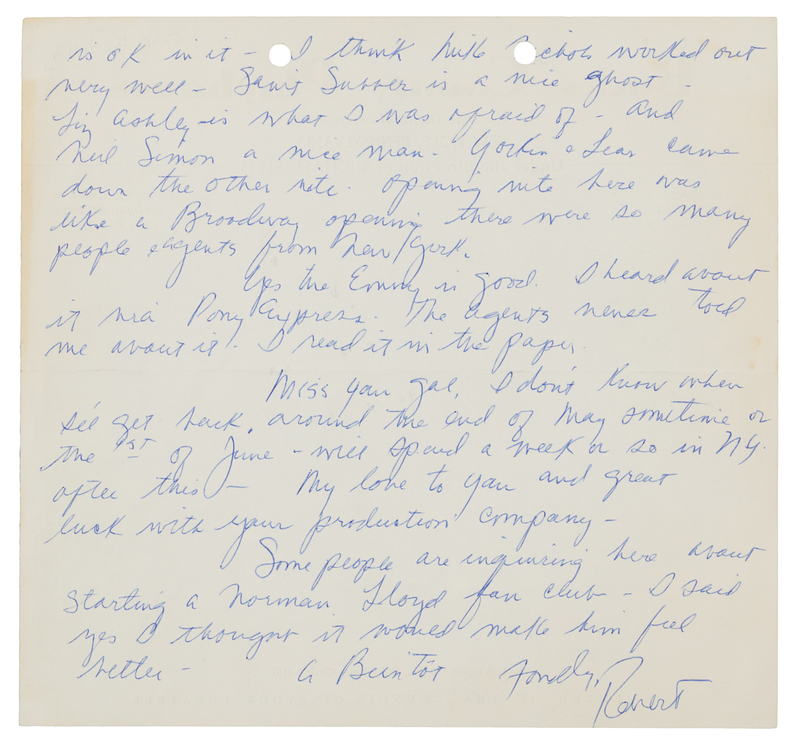 is ok in it – I think Mike Nichols worked out
very well – Saint Subber is a nice ghost.
Liz Ashley is what I was afraid of – And
Neil Simon a nice man. Yorkin & Lear came
down the other nite. Opening nite here was
like a Broadway opening there were so many
people & agents from New York.
Yes the Emmy is good. I heard about
it via Pony Express. The agents never told
me about it. I read it in the paper.
Miss you gal, I don't know when
I'll get back, around the end of May sometime or
the 1st of June – will spend a week or so in NY.
after this – My love to you and great
luck with your production company –
Some people are inquiring here about
starting a Norman Lloyd fan club – I said
yes I thought it would make him feel
better – A Bientôt Fondly,
Robert